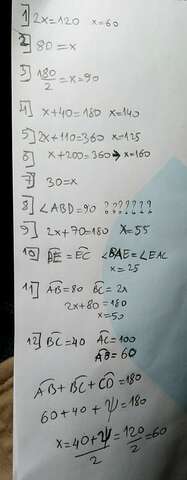 1] 2x=120 x=60
2] 80=x
3] 180/2=x=90
4] x+40=180 x=140
5] 2x+110=360 x=125
6] x+200=360→x=160
7] 30=x
8] ∠ABD=90 ???????
9] 2x+70=180 x=55
10] DE=EC ∠DAE=∠EAC
x=25
11] AB=80 BC=2x
2x+80=180
x=50
12] BC=40 AC=100
AB=60
AB+BC+CD=180
60+40+Ψ=180
x=40+Ψ/2=120/2=60